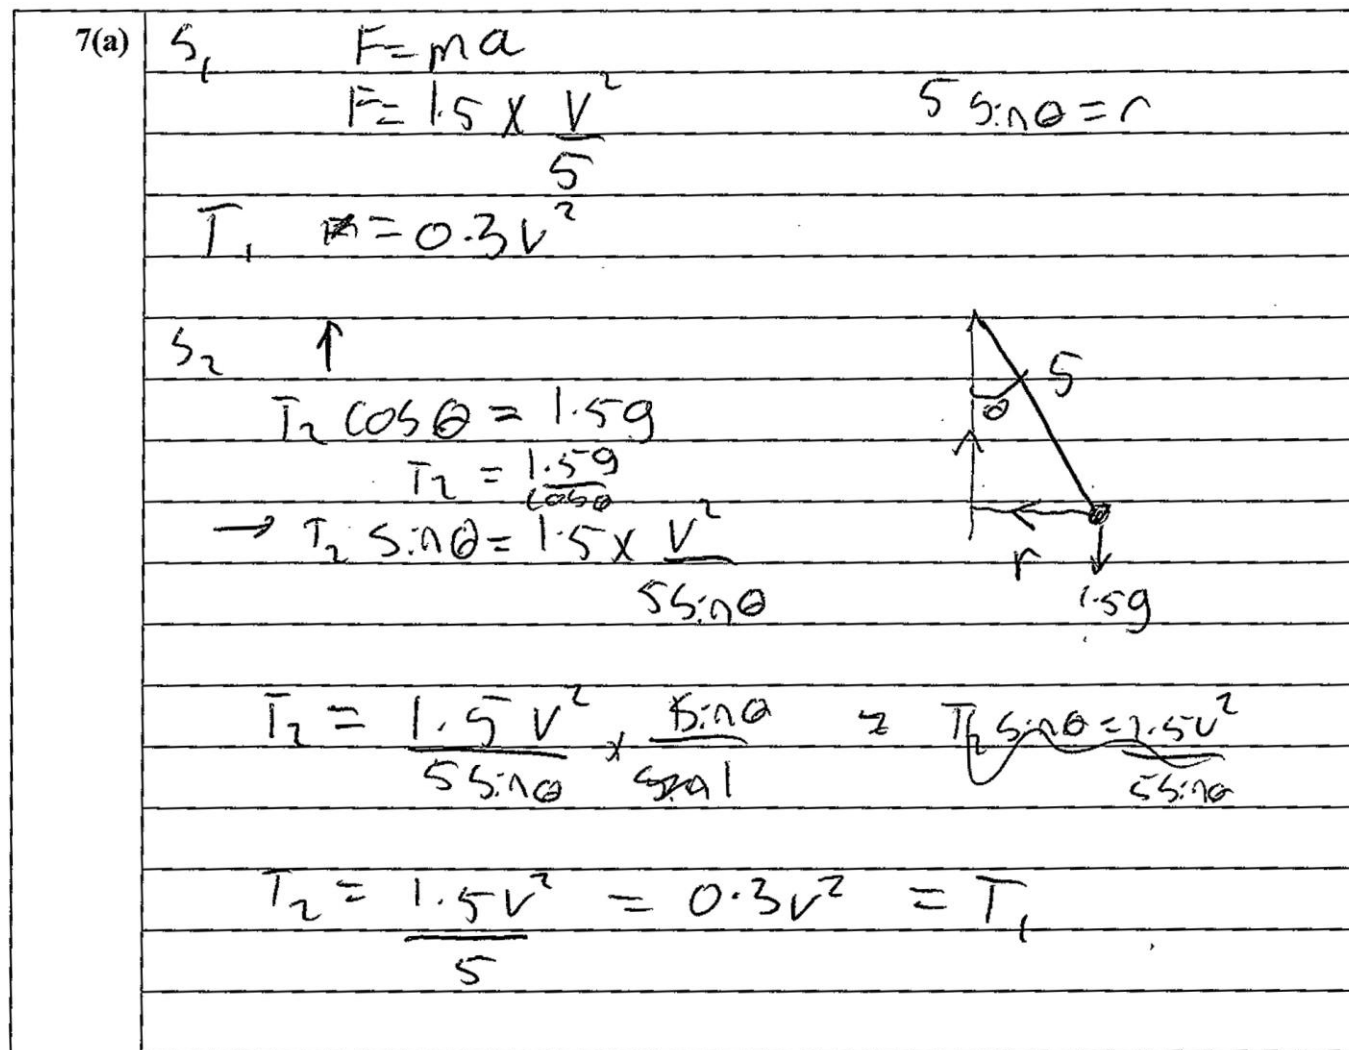 7(a) S₁ F = ma
F = 1.5 × v²/5 5 sinθ = r
T₁ = 0.3v²
S₂ ↑
5
θ
T₂ cosθ = 1.5g
T₂ = 1.5g/cosθ
→ T₂ sinθ = 1.5 × v²/5sinθ
r
1.5g
T₂ = 1.5v²/5sinθ × sinθ/1 = T₂ sinθ = 1.5v²/5sinθ
T₂ = 1.5v²/5 = 0.3v² = T₁